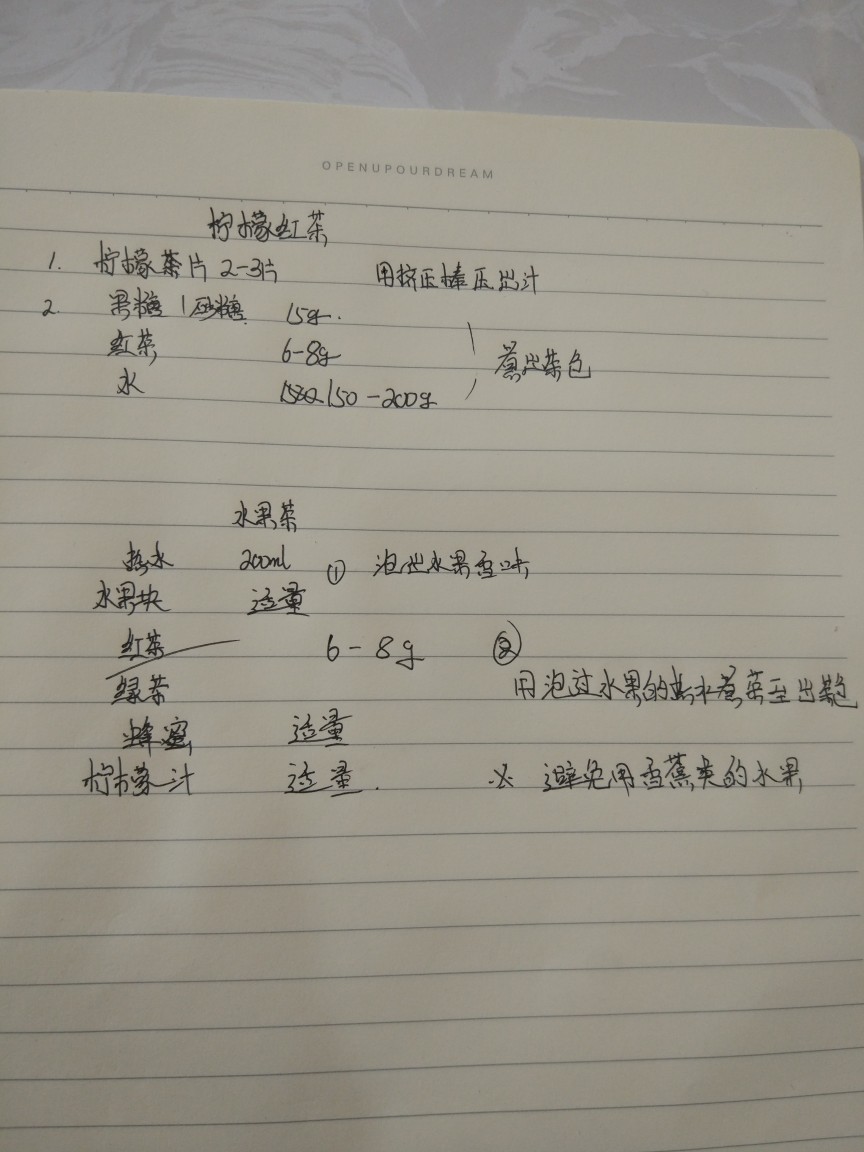 OPENUPOURDREAM
柠檬红茶
1. 柠檬茶片 2-3片 用挤压棒压出汁
2. 果糖/砂糖 15g.
红茶 6-8g 煮出茶色
水 150-200g
水果茶
热水 200ml ① 泡出水果香味
水果块 适量
红茶 6-8g ②
绿茶 用泡过水果的热水煮茶至出颜色
蜂蜜 适量
柠檬汁 适量. ※ 避免用香蕉类的水果